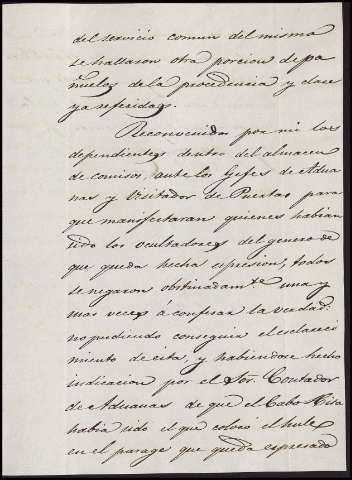 del servicio comun del mismo
se hallaron otra porcion de pa
ñuelos de la procedencia y clase
ya referidas.
Reconvenidos por mi los
dependientes dentro del almacen
de comisos, ante los Gefes de Adua
nas y Visitador de Puertas para
que manifestaran quienes habian
sido los ocultadores del genero de
que queda hecha espresion, todos
se negaron obstinadamte. una y
mas veces á confesar la verdad:
no pudiendo conseguir el esclareci
miento de esta, y habiendose hecho
indicacion por el Sor. Contador
de Aduanas de que el Cabo
habia sido el que colocó el hule
en el parage que queda espresado